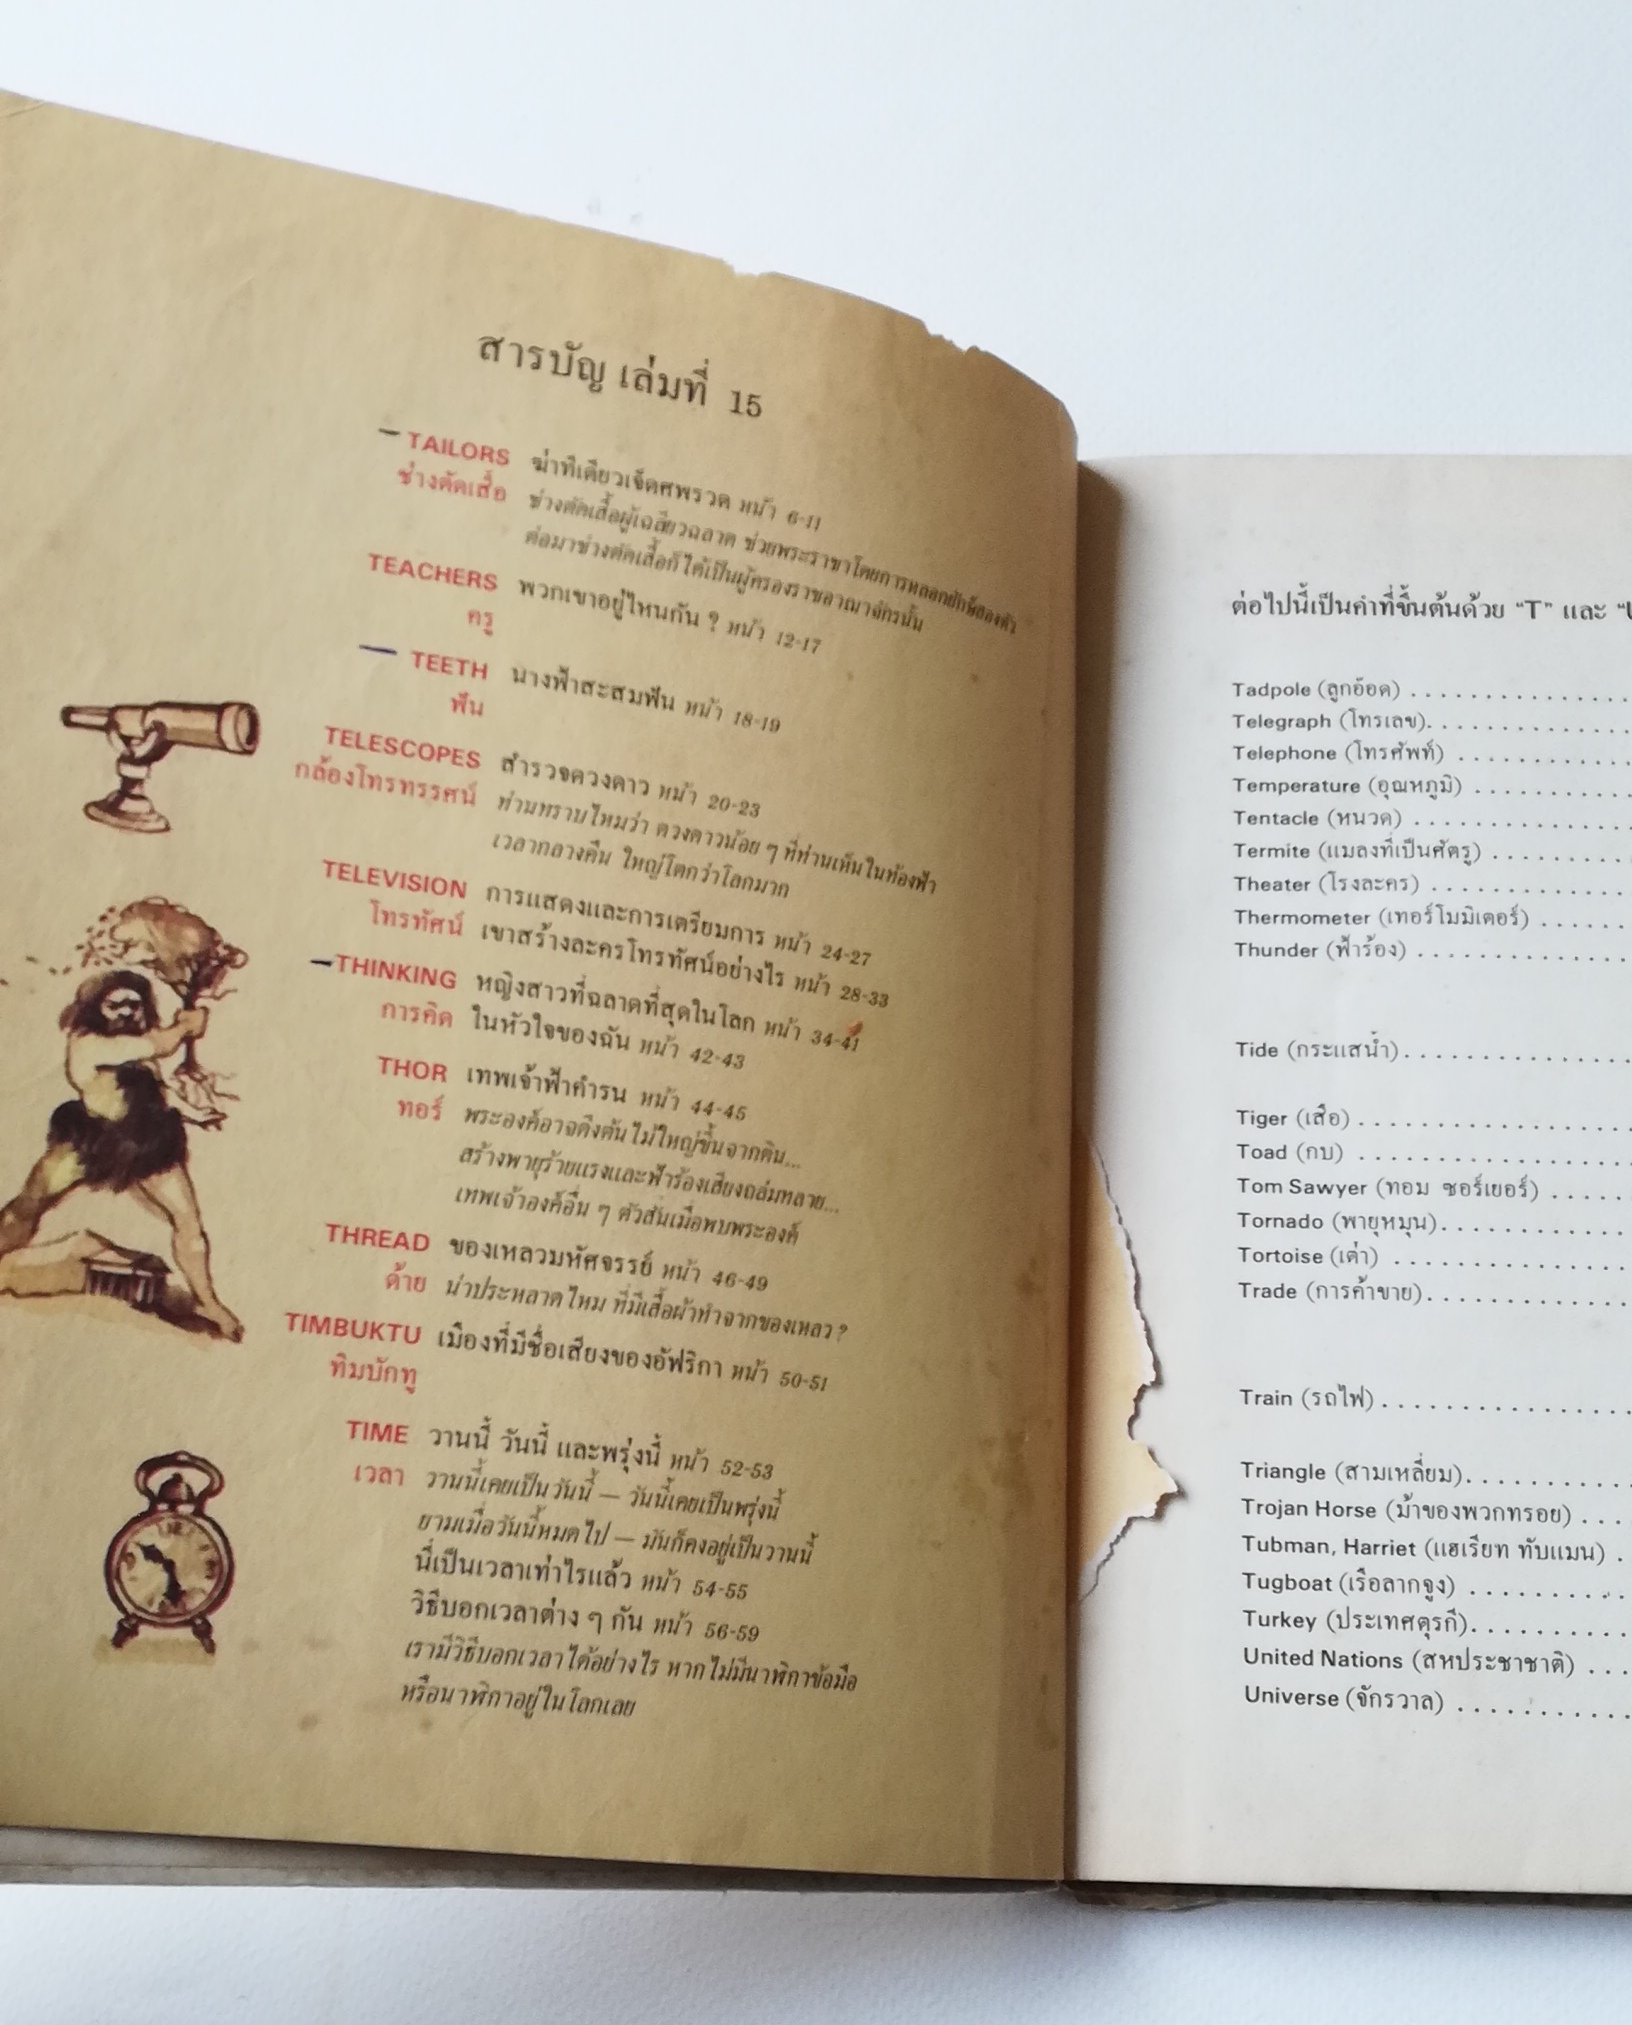 สารบัญ เล่มที่ 15
TAILORS ฆ่าทีเดียวเจ็ดศพรวด หน้า 6-11
ช่างตัดเสื้อ ช่างตัดเสื้อผู้เฉลียวฉลาด ช่วยพระราชาโดยการหลอกยักษ์สองตัว
ต่อมาช่างตัดเสื้อก็ได้เป็นผู้ครองราชอาณาจักรนั้น
TEACHERS พวกเขาอยู่ไหนกัน ? หน้า 12-17
ครู
TEETH นางฟ้าสะสมฟัน หน้า 18-19
ฟัน
TELESCOPES สำรวจดวงดาว หน้า 20-23
กล้องโทรทรรศน์ ท่านทราบไหมว่า ดวงดาวน้อย ๆ ที่ท่านเห็นในท้องฟ้า
เวลากลางคืน ใหญ่โตกว่าโลกมาก
TELEVISION การแสดงและการเตรียมการ หน้า 24-27
โทรทัศน์ เขาสร้างละครโทรทัศน์อย่างไร หน้า 28-33
THINKING หญิงสาวที่ฉลาดที่สุดในโลก หน้า 34-41
การคิด ในหัวใจของฉัน หน้า 42-43
THOR เทพเจ้าฟ้าคำรน หน้า 44-45
ทอร์ พระองค์อาจดึงต้นไม้ใหญ่ขึ้นจากดิน...
สร้างพายุร้ายแรงและฟ้าร้องเสียงถล่มทลาย...
เทพเจ้าองค์อื่น ๆ ตัวสั่นเมื่อพบพระองค์
THREAD ของเหลวมหัศจรรย์ หน้า 46-49
ด้าย น่าประหลาดไหม ที่มีเสื้อผ้าทำจากของเหลว ?
TIMBUKTU เมืองที่มีชื่อเสียงของอัฟริกา หน้า 50-51
ทิมบักทู
TIME วานนี้ วันนี้ และพรุ่งนี้ หน้า 52-53
เวลา วานนี้เคยเป็นวันนี้ — วันนี้เคยเป็นพรุ่งนี้
ยามเมื่อวันนี้หมดไป — มันก็คงอยู่เป็นวานนี้
นี่เป็นเวลาเท่าไรแล้ว หน้า 54-55
วิธีบอกเวลาต่าง ๆ กัน หน้า 56-59
เรามีวิธีบอกเวลาได้อย่างไร หากไม่มีนาฬิกาข้อมือ
หรือนาฬิกาอยู่ในโลกเลย
ต่อไปนี้เป็นคำที่ขึ้นต้นด้วย "T" และ "U
Tadpole (ลูกอ๊อด) . . . . . . . . . . . . . . .
Telegraph (โทรเลข). . . . . . . . . . . . . .
Telephone (โทรศัพท์) . . . . . . . . . . . .
Temperature (อุณหภูมิ) . . . . . . . . . . .
Tentacle (หนวด) . . . . . . . . . . . . . . .
Termite (แมลงที่เป็นศัตรู) . . . . . . . . . .
Theater (โรงละคร) . . . . . . . . . . . . . .
Thermometer (เทอร์โมมิเตอร์) . . . . . . .
Thunder (ฟ้าร้อง) . . . . . . . . . . . . . . .
Tide (กระแสน้ำ). . . . . . . . . . . . . . . .
Tiger (เสือ) . . . . . . . . . . . . . . . . . . .
Toad (กบ) . . . . . . . . . . . . . . . . . . .
Tom Sawyer (ทอม ซอร์เยอร์) . . . . . .
Tornado (พายุหมุน). . . . . . . . . . . . . .
Tortoise (เต่า) . . . . . . . . . . . . . . . . .
Trade (การค้าขาย). . . . . . . . . . . . . . .
Train (รถไฟ) . . . . . . . . . . . . . . . . . .
Triangle (สามเหลี่ยม). . . . . . . . . . . .
Trojan Horse (ม้าของพวกทรอย) . . . .
Tubman, Harriet (แฮเรียท ทับแมน) .
Tugboat (เรือลากจูง) . . . . . . . . . . . .
Turkey (ประเทศตุรกี). . . . . . . . . . . .
United Nations (สหประชาชาติ) . . .
Universe (จักรวาล) . . . . . . . . . . . .